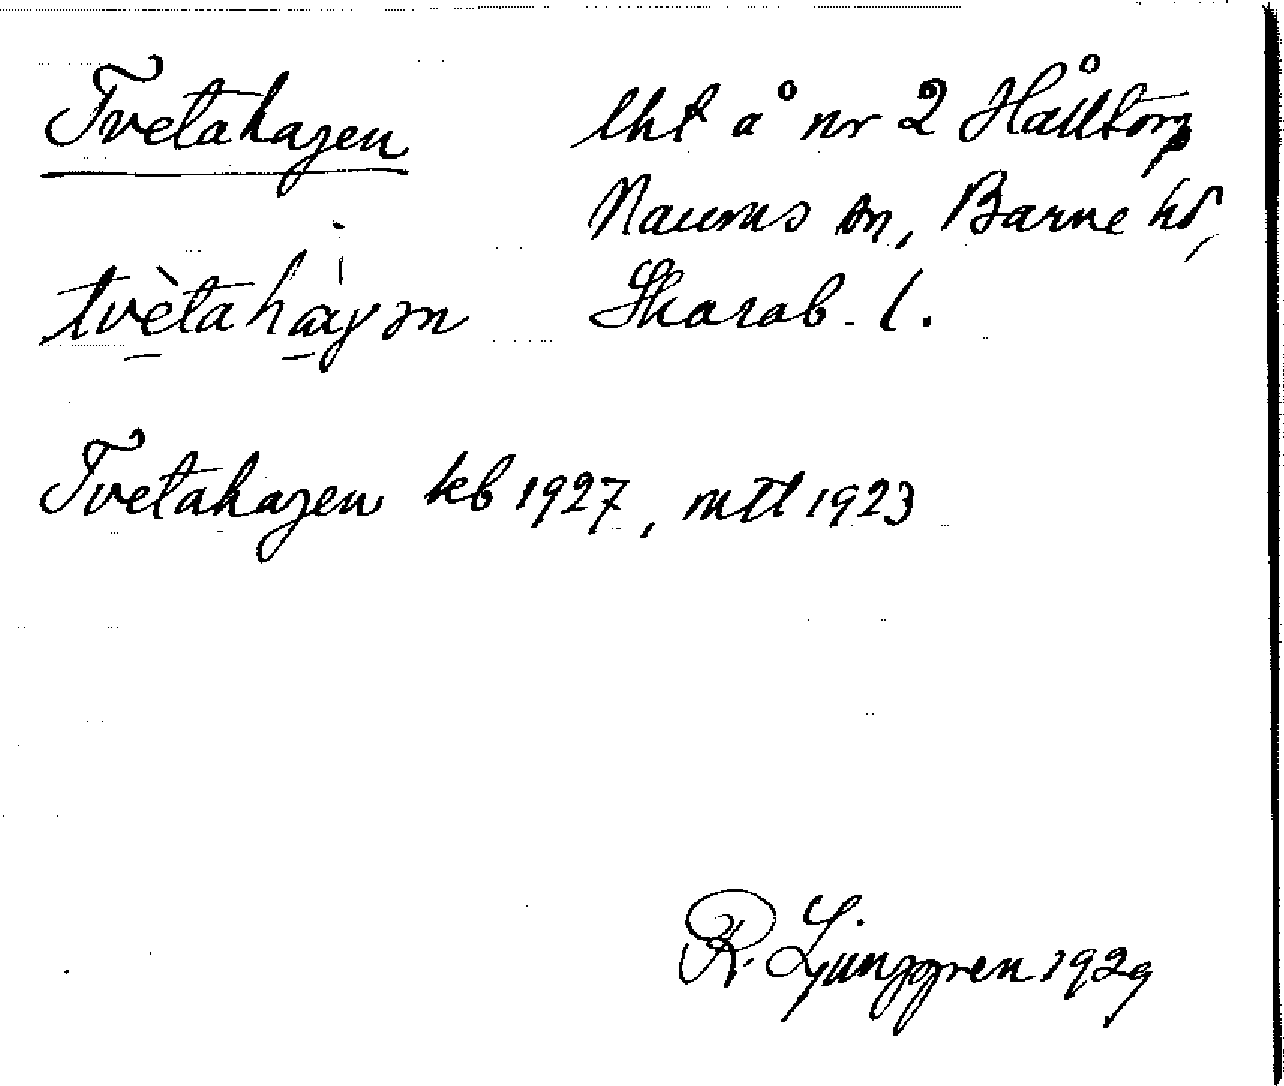 Tvetahagen lht å nr 2 Hålltorp
Naums sn, Barne hd,
tvètahàgən Skarab. l.
Tvetahagen kb 1927, mtl 1923
R. Ljunggren 1929